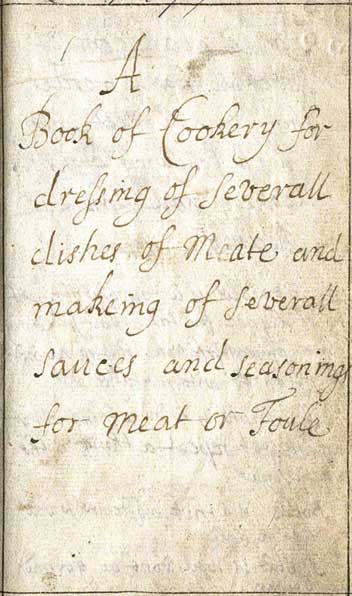 A
Book of Cookery for
dreſsing of Severall
dishes of Meate and
makeing of Severall
Sauces and Seasonings
for Meat or Foule